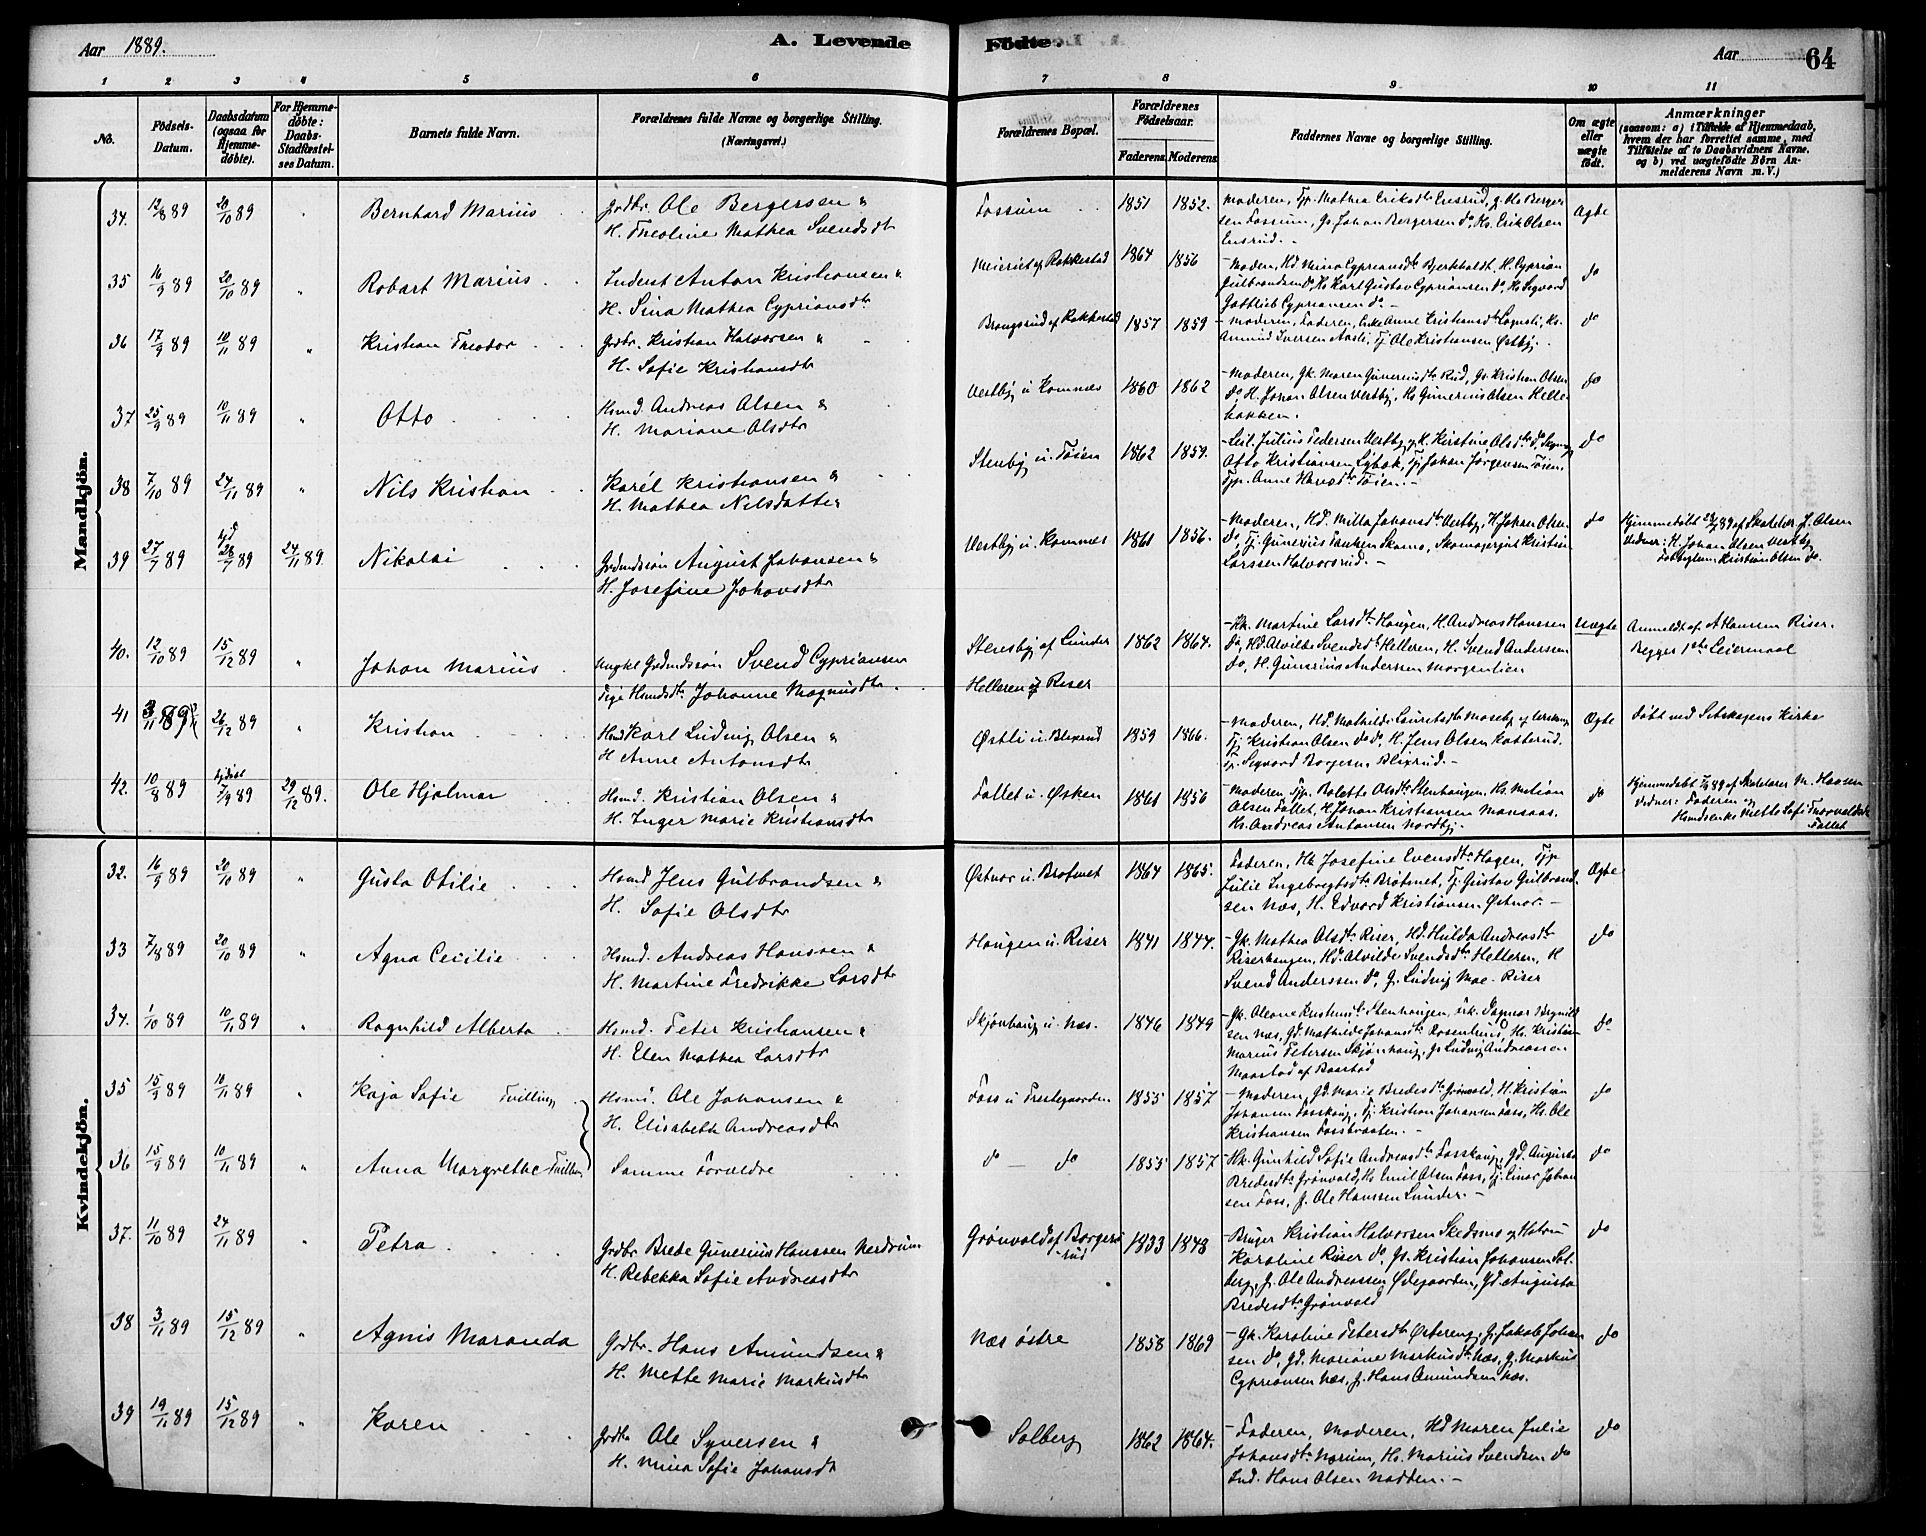 Aar 1889.
A. Levende
Födte.
Aar
64
1 2 3 4 5 6 7 8 9 10 11
No.
Födsels-Datum.
Daabsdatum (ogsaa for Hjemme-döbte).
For Hjemme-döbte: Daabs-Stadfæstel-ses Datum.
Barnets fulde Navn.
Forældrenes fulde Navne og borgerlige Stilling.
(Næringsvei.)
Forældrenes Bopæl.
Forældrenes Födselsaar.
Faderens Moderens
Faddernes Navne og borgerlige Stilling.
Om ægte eller uægte födt.
Anmærkninger
(saasom: a) i Tilfælde af Hjemmedaab, hvem der har forrettet samme, med Tilföielse af to Daabsvidners Navne, og b) ved uægtefödte Börn An-melderens Navn m. V.)
Mandkjön.
34. 12/8 89 20/10 89 " Bernhard Marius Grdbr. Ole Bergersen &
H. Theoline Mathea Svendsdtr
Fossum 1851 1852.
Moderen, Tjp. Mathea Eriksdtr Ensrud, G. Ole Berger-
sen Fossum, Gs. Johan Bergersen do, Hs. Erik Olsen
Ensrud. -
Ægte
35 16/9 89 20/10 89 " Robart Marius Inderst Anton Kristiansen &
H. Sina Mathea Cypriansdtr
Meieriet af Rakkestad 1864 1856
Gulbrandsen do Hs Karl Gustav Cypriansen do, Hs Sigvard
Gottlieb Cypriansen do. -
do
36 17/9 89 10/11 89 " Kristian Theodor Grdbr. Kristian Halvorsen &
H. Sofie Kristiansdtr
1857 1859
Amund Iversen Aasli, Tj. Ole Kristiansen Østby.
do
37 25/9 89 10/11 89 " Otto Hsmd. Andreas Olsen &
H. Mariane Olsdtr
Vestby u. Komnæs 1860 1862
- Moderen, Gk. Maren Guneriusdtr Rud, Gs. Kristian Olsen
do H. Johan Olsen Vestby, Hs Gunerius Olsen Helle-
bakken.
do
38 7/10 89 24/11 89 " Nils Kristian Karél Kristiansen &
H. Mathea Nilsdatter
Stenby u. Föien 1862 1859.
Otto Kristiansen Lybæk, Tj. Johan Jörgensen Föien,
do
39 27/7 89 hjd 28/7 89 24/11 89. Nikolai Grdmdssön August Johansen &
H. Josefine Johansdtr
Vestby u. Komnæs 1861 1856.
- Moderen, Hd. Milla Johansdtr Vestby, H. Johan Olsen
Larssen Halvorsrud. -
do
Hjemmedöbt 28/7 89 af Skolelær. J. Olsen
Vidner: H. Johan Olsen Vestby
Kristian Olsen do.
40. 12/10 89 15/12 89 " Johan Marius Ungkl Grdmdssön Svend Cypriansen
Pige Hsmdsdtr. Johanne Magnusdtr
Stensby af Lunder
Helleren af Riser
1862 1864.
- Hk. Martine Larsdtr Haugen, H. Andreas Hanssen
do, Hd. Alvilde Svendsdtr Helleren, H. Svend Anderssen
do, H. Gunerius Anderssen Morgenlien
uægte
Anmeldt af A Hansen Riser.
Begges 1ste Leiermaal
41 3/11 89 26/12 89 " Kristian Hsmd Karl Ludvig Olsen &
H Anne Antonsdtr
Østli u. Blexrud 1859 1866.
Tj. Kristian Olsen do do, H. Jens Olsen Katterud.
Tj. Sigvard Borgersen Blixrud. -
Ægte
Döbt ved Setskogens Kirke
42. 10/8 89 hjdöbt 7/9 89 29/12 89. Ole Hjalmar Hsmd. Kristian Olsen &
H. Inger Marie Kristiansdtr
Fallet u. Øsken 1861 1856
- Moderen, Tjp. Bolette Olsdtr Stenhaugen, Hs. Matian
Olsen Fallet, H. Johan Kristiansen Mansaas.
Hs. Andreas Antonsen Nordby.
do
Hjemmedöbt 7/9 89 af Skolelærer M. Hansen
Vidner: Faderen og
Hsmdsenke Mette Sofie Thorvaldsdtr
Fallet
Kvindekjön.
32. 16/9 89 20/10 89 " Gusta Otilie Hsmd Jens Gulbrandsen &
H. Sofie Olsdtr
Østnor u. Brötmet 1864 1865.
- Faderen, Hk Josefine Evensdtr Hagen, Tjp
Julie Ingebregtsdtr Brötmet, Tj. Gustav Gulbrand-
sen Næs, H. Edvard Kristiansen Østnor. -
Ægte
33 7/8 89 20/10 89 " Agna Cecilie Hsmd. Andreas Hanssen &
H. Martine Fredrikke Larsdtr
Haugen u. Riser 1841 1844.
- Gk. Mathea Olsdtr Riser, Hd. Hulda Andreasdtr
Riserhaugen, Hd. Alvilde Svendsdtr Helleren, H
Svend Anderssen do, G. Ludvig Moe-Riser
do
34. 1/10 89 10/11 89 " Ragnhild Alberta Hsmd. Peter Kristiansen &
H. Elen Mathea Larsdtr
Skjönhaug u. Næs. 1846 1849
sen Næs, Gd. Mathilde Johansdtr Rosenlund, Hs. Kristian
Marius Petersen Skjönhaug, Gs Ludvig Andreassen
Maarstad af Baastad
do
35 15/9 89 10/11 89 " Kaja Sofie Tvilling Hsmd. Ole Johansen &
H. Elisabeth Andreasdtr
Foss u Prestegaarden 1855 1857
- Moderen, Gd. Marie Bredesdtr Grönvold, H. Kristian
Johansen Fosshaug, Tj. Kristian Johansen Foss, Hs. Ole
Kristiansen Fossbraaten. -
do
36 15/9 89 10/11 89 " Anna Margrethe Tvilling Samme Forældre
do - do 1855 1857
- Hk. Gunhild Sofie Andreasdtr Fosshaug, Gd. Augusta
Bredesdtr Grönvold, Hs Emil Olsen Foss, Tj. Einar Johan-
sen Foss, G. Ole Hanssen Lunder. -
do
37. 11/10 89 24/11 89 " Petra Grdbr. Brede Gunerius Hanssen Nerdrum
H. Rebekka Sofie Andreasdtr
Grönvold af Borgers-
rud
1833 1848
- Bruger Kristian Halvorsen Skedsmo og Hstru
Karoline Riser do, Gs. Kristian Johansen Sol-
berg, G. Ole Andreassen Ødegaarden, Gd. Augusta
Bredesdtr Grönvold
do
38 3/11 89 15/12 89 " Agnis Maranda Grdbr. Hans Amundsen &
H. Mette Marie Markusdtr
Næs östre 1858 1869
- Gk. Karoline Petersdtr Østereng, G. Jakob Johan-
sen do, Gd. Mariane Markusdtr Næs, G. Markus
Cypriansen Næs, G. Hans Amundsen Næs.
do
39 19/11 89 15/12 89 " Karen Grdbr Ole Syversen &
H. Mina Sofie Johansdtr
Solberg 1862 1864.
- Faderen, Moderen, Hd Maren Julie
Johansdtr Nærum, Hs. Marius Svendsen do
Ind. Hans Olsen Nadden. -
do